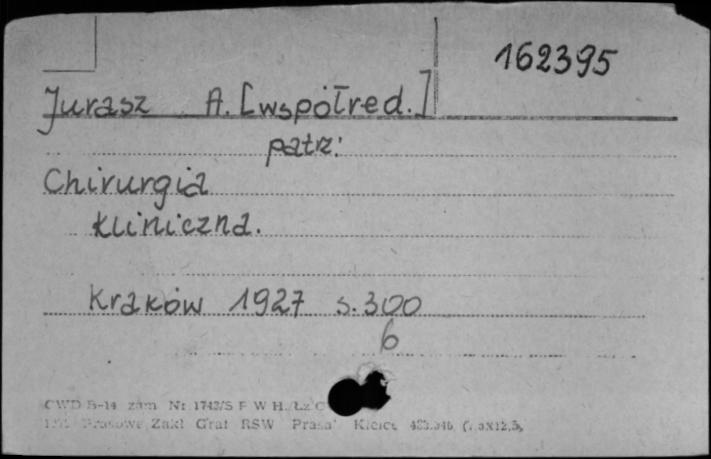 162395
Jurasz A. [współred.]
patrz:
Chirurgia
kliniczna.
Kraków 1927 s.300
6
CWD B-14 zam Nr 1742/S F W H.
Prasowe Zakł Graf RSW "Prasa" Kielce